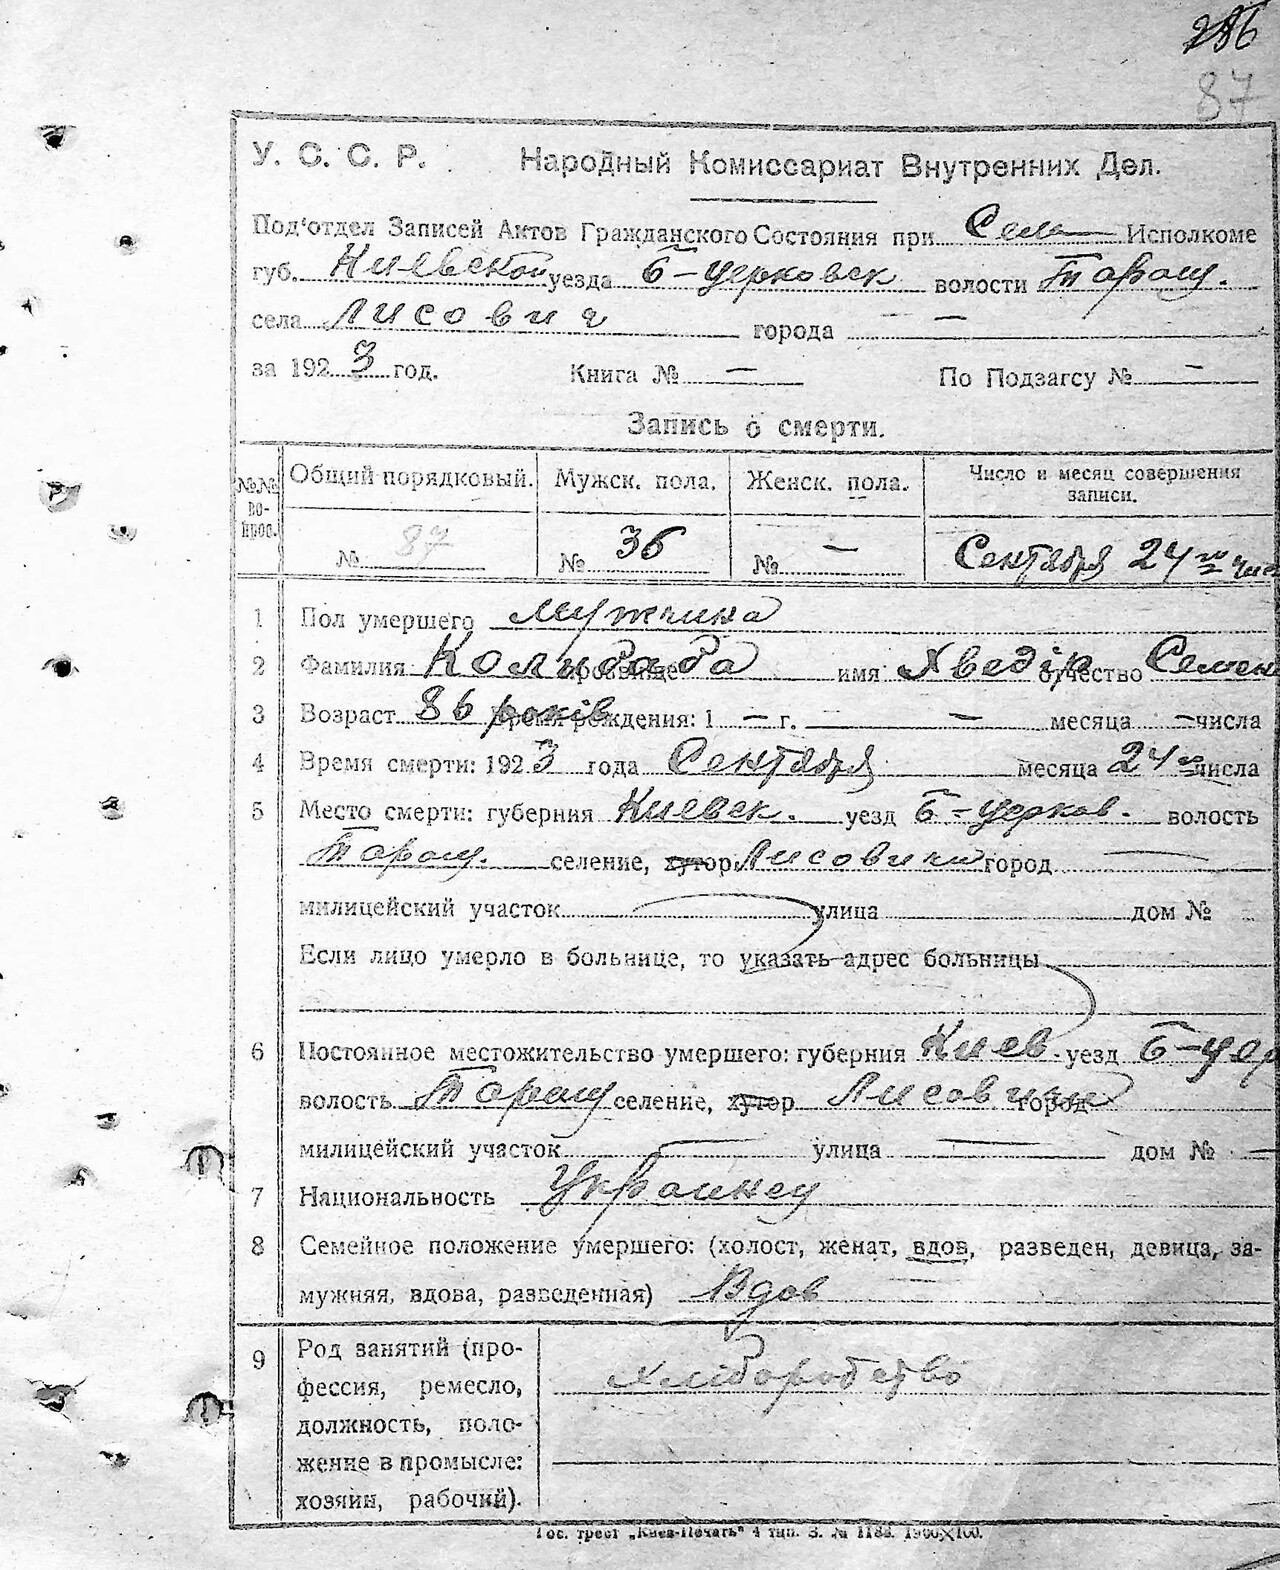 286
87
У. С. С. Р. Народный Комиссариат Внутренних Дел.
Под'отдел Записей Актов Гражданского Состояния при Сель Исполкоме
губ. Киевской уезда Б-церковск волости Таращ.
села Лисович города —
за 1923 год. Книга № — По Подзагсу № —
Запись о смерти.
№№ вопрос. Общий порядковый. Мужск. пола. Женск. пола. Число и месяц совершения записи.
№ 87 № 36 № — Сентября 24го числ
1 Пол умершего мужчина
2 Фамилия прозвище имя Хведір отчество Семен
3 Возраст 86 років Время рождения: 1 — г. — месяца — числа
4 Время смерти: 1923 года Сентября месяца 24го числа
5 Место смерти: губерния Киевск. уезд Б-церков. волость
Таращ. селение, хутор Лисовичи город —
милицейский участок улица дом №
Если лицо умерло в больнице, то указать адрес больницы
6 Постоянное местожительство умершего: губерния Киев. уезд Б-цер
волость Таращ селение, хутор Лисовичи город
милицейский участок — улица — дом № —
7 Национальность Украинец
8 Семейное положение умершего: (холост, женат, вдов, разведен, девица, за-
мужняя, вдова, разведенная) Вдов
9 Род занятий (про-
фессия, ремесло, хліборобство
должность, поло-
жение в промысле:
хозяин, рабочий).
Гос. трест „Киев-Печать" 4 тип. З. № 1188. 1900×100.